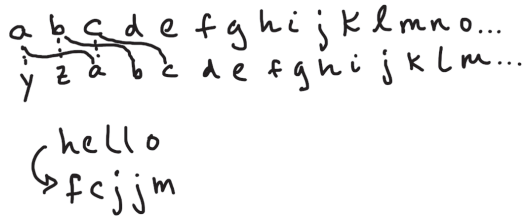 a b c d e f g h i j k l m n o...
y z a b c d e f g h i j k l m...
hello
fcjjm